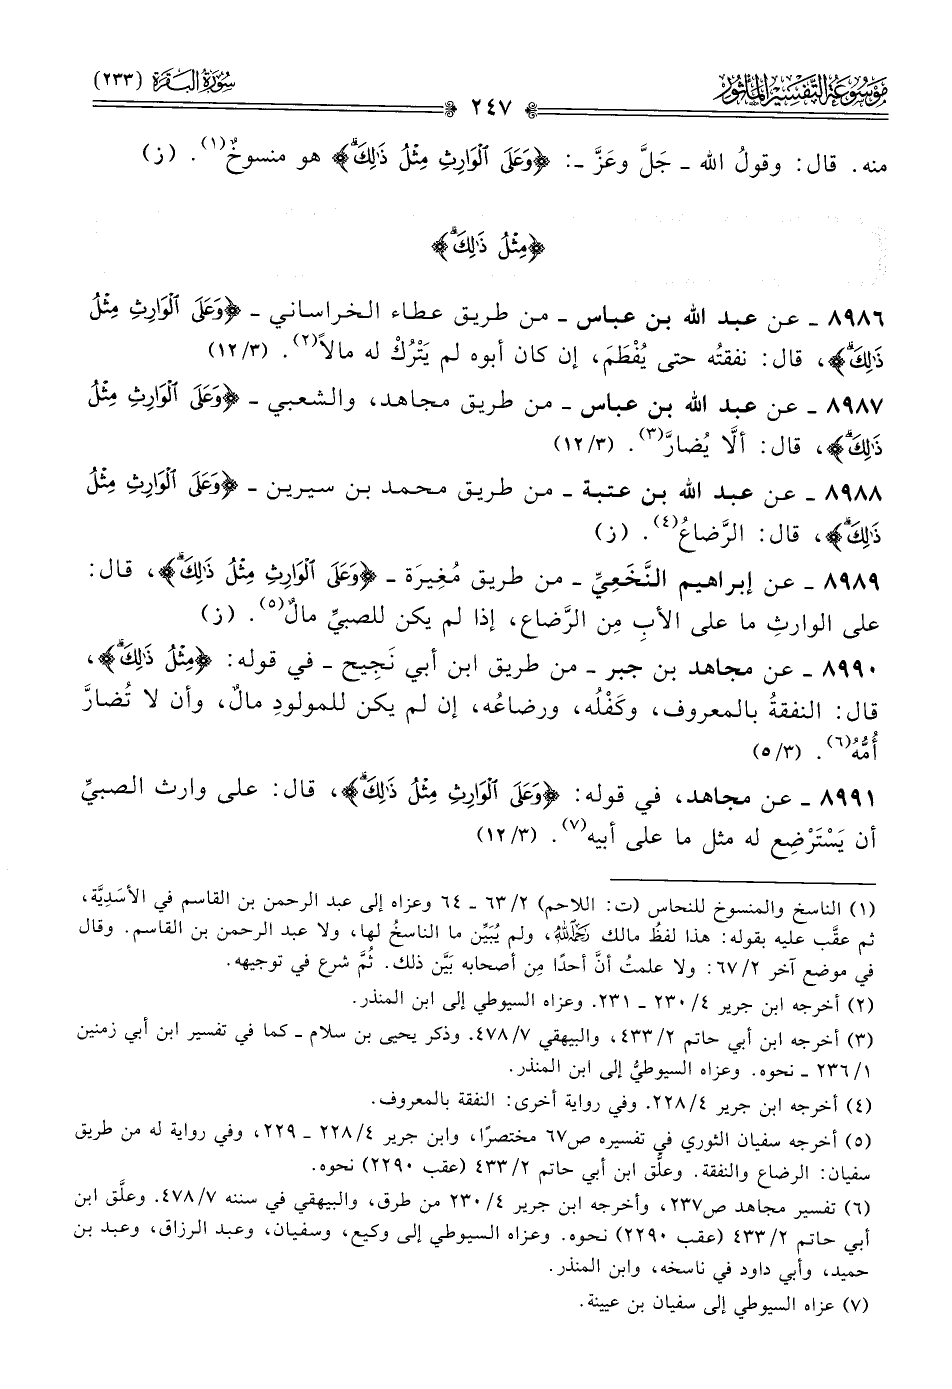 موسوعة التفسير المأثور
سورة البقرة (٢٣٣)
٢٤٧
منه. قال: وقولُ الله ـ جَلَّ وعَزَّ ـ: ﴿وَعَلَى ٱلْوَارِثِ مِثْلُ ذَٰلِكَۗ﴾ هو منسوخٌ(١). (ز)
﴿مِثْلُ ذَٰلِكَۗ﴾
٨٩٨٦ ـ عن عبد الله بن عباس ـ من طريق عطاء الخراساني ـ ﴿وَعَلَى ٱلْوَارِثِ مِثْلُ
ذَٰلِكَۗ﴾، قال: نفقتُه حتى يُفْطَمَ، إن كان أبوه لم يَتْرُكْ له مالاً(٢). (١٢/٣)
٨٩٨٧ ـ عن عبد الله بن عباس ـ من طريق مجاهد، والشعبي ـ ﴿وَعَلَى ٱلْوَارِثِ مِثْلُ
ذَٰلِكَۗ﴾، قال: ألَّا يُضارَّ(٣). (١٢/٣)
٨٩٨٨ ـ عن عبد الله بن عتبة ـ من طريق محمد بن سيرين ـ ﴿وَعَلَى ٱلْوَارِثِ مِثْلُ
ذَٰلِكَۗ﴾، قال: الرَّضاعُ(٤). (ز)
٨٩٨٩ ـ عن إبراهيم النَّخَعِيِّ ـ من طريق مُغِيرَة ـ ﴿وَعَلَى ٱلْوَارِثِ مِثْلُ ذَٰلِكَۗ﴾، قال:
على الوارثِ ما على الأبِ مِن الرَّضاع، إذا لم يكن للصبيِّ مالٌ(٥). (ز)
٨٩٩٠ ـ عن مجاهد بن جبر ـ من طريق ابن أبي نَجيح ـ في قوله: ﴿مِثْلُ ذَٰلِكَۗ﴾،
قال: النفقةُ بالمعروف، وكَفْلُه، ورضاعُه، إن لم يكن للمولودِ مالٌ، وأن لا تُضارَّ
أُمُّه(٦). (٥/٣)
٨٩٩١ ـ عن مجاهد، في قوله: ﴿وَعَلَى ٱلْوَارِثِ مِثْلُ ذَٰلِكَۗ﴾، قال: على وارث الصبيِّ
أن يَسْتَرْضِع له مثل ما على أبيه(٧). (١٢/٣)
(١) الناسخ والمنسوخ للنحاس (ت: اللاحم) ٦٣/٢ ـ ٦٤ وعزاه إلى عبد الرحمن بن القاسم في الأسَدِيَّة،
ثم عقَّب عليه بقوله: هذا لفظُ مالك رَحِمَهُ ٱللَّهُ، ولم يُبَيِّن ما الناسخُ لها، ولا عبد الرحمن بن القاسم. وقال
في موضع آخر ٦٧/٢: ولا علمتُ أنَّ أحدًا مِن أصحابه بَيَّن ذلك. ثُمَّ شرع في توجيهه.
(٢) أخرجه ابن جرير ٢٣٠/٤ ـ ٢٣١. وعزاه السيوطي إلى ابن المنذر.
(٣) أخرجه ابن أبي حاتم ٤٣٣/٢، والبيهقي ٤٧٨/٧. وذكر يحيى بن سلام ـ كما في تفسير ابن أبي زمنين
٢٣٦/١ ـ نحوه. وعزاه السيوطيُّ إلى ابن المنذر.
(٤) أخرجه ابن جرير ٢٢٨/٤. وفي رواية أخرى: النفقة بالمعروف.
(٥) أخرجه سفيان الثوري في تفسيره ص٦٧ مختصرًا، وابن جرير ٢٢٨/٤ ـ ٢٢٩، وفي رواية له من طريق
سفيان: الرضاع والنفقة. وعلَّق ابن أبي حاتم ٤٣٣/٢ (عقب ٢٢٩٠) نحوه.
(٦) تفسير مجاهد ص٢٣٧، وأخرجه ابن جرير ٢٣٠/٤ من طرق، والبيهقي في سننه ٤٧٨/٧. وعلَّق ابن
أبي حاتم ٤٣٣/٢ (عقب ٢٢٩٠) نحوه. وعزاه السيوطي إلى وكيع، وسفيان، وعبد الرزاق، وعبد بن
حميد، وأبي داود في ناسخه، وابن المنذر.
(٧) عزاه السيوطي إلى سفيان بن عيينة.